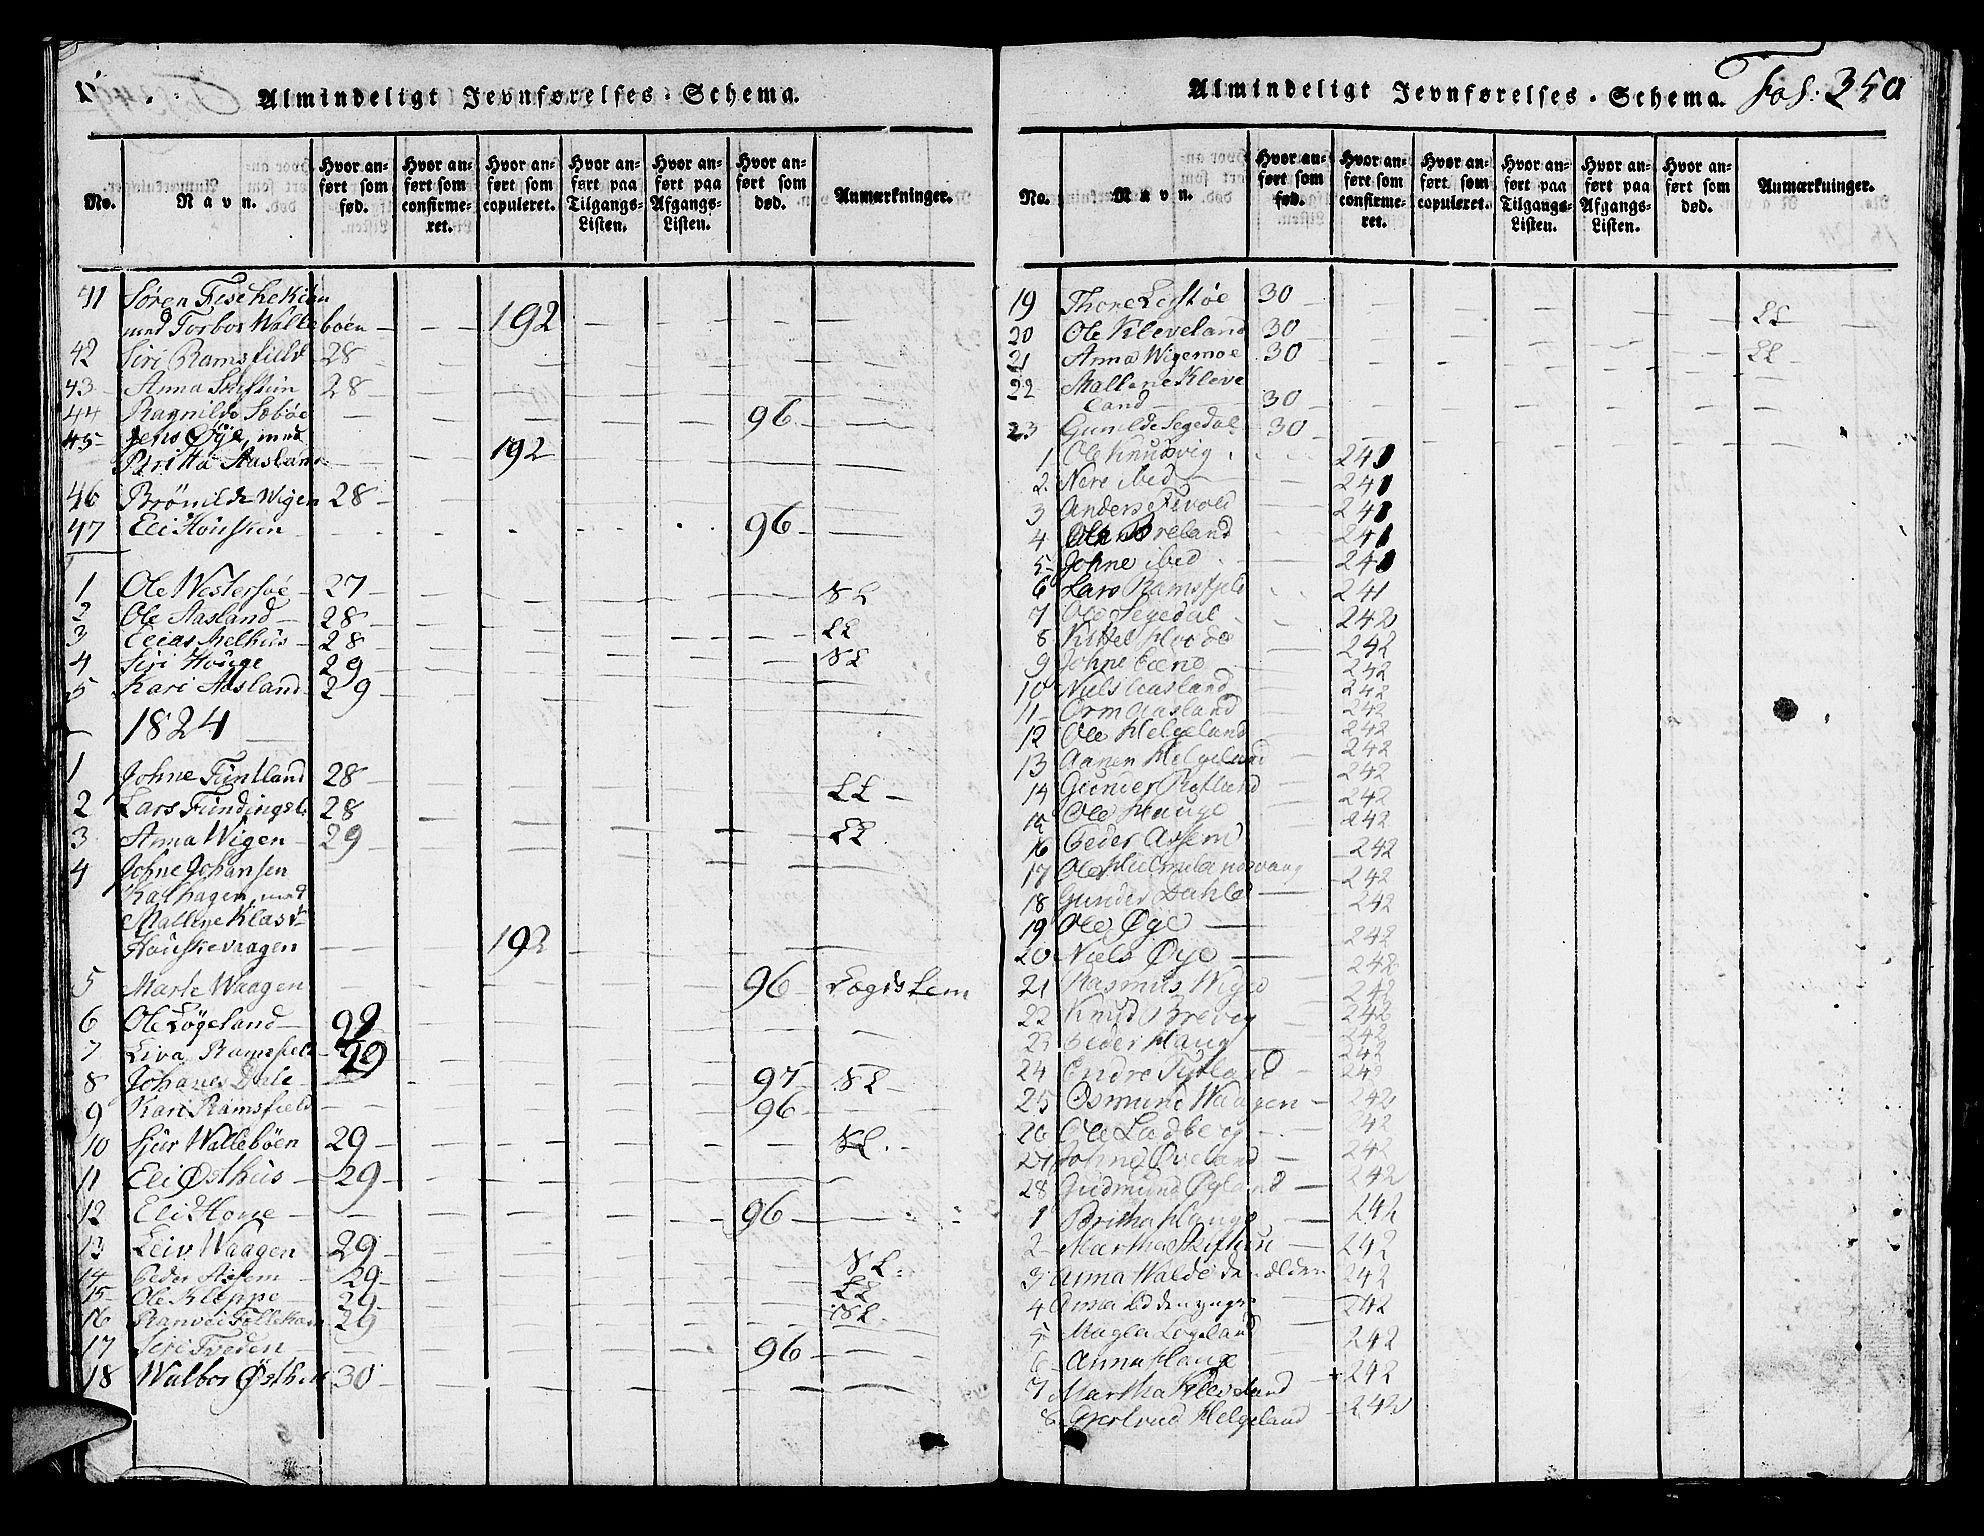 Almindeligt Jevnførelses-Schema.
No.
Navn.
Hvor anført som fød.
Hvor anført som confirmeret.
Hvor anført som copuleret.
Hvor anført paa Tilgangs-Listen.
Hvor anført paa Afgangs-Listen.
Hvor anført som død.
Anmærkninger.
41 Søren
med Torbor Wallebøen 192
42 Siri Ramsfield 28
43 Anna 28
44 Ragnilde Sebøe 96
45 Jens Øye, med
Britta Aasland 192
46 Brönilde Wigen 28
47 Eli 96
1 Ole Westersøe 27 NL
2 Ole Aasland 28
3 Elias Melhus 28 LL
4 Siri Houge 29 NL
5 Kari Aasland 29
1824
1 Johne Tüntland 28 LL
2 Lars 28
3 Anna Wigen 29 LL
4 Johne Johansen
Kathagen, med
Mallene
192
5 Marte Waagen 96 Lægislem
6 Ole Løgeland 29
7 Liva Ramsfield 29
8 Johanes Dale 97 NL
9 Kari Ramsfield 96
10 Sjur Wallebøen 29 NL.
11 Eli Østhüs 29
12 Eli 96
13 Leiv Waagen 29 NL
14 Peder Assem 29 LL
15 Ole Kleppe 29 NL
16 Ranvei 29
17 Siri Tveden 96
18 Walbor 30
Almindeligt Jevnførelses-Schema.
Fol. 350
No.
Navn.
Hvor anført som fød.
Hvor anført som confirmeret.
Hvor anført som copuleret.
Hvor anført paa Tilgangs-Listen.
Hvor anført paa Afgangs-Listen.
Hvor anført som død.
Anmærkninger.
19 Thore 30 LL
20 Ole Kleveland 30 LL
21 Anna Wigemoe 30
22 Mallene Kleve
land 30
23 Gunilde Segedal 30
1 Ole Knudsvig 241
2 Nere ibid 241
3 Anders 241
4 Ole Breland 241
5 Johne ibid 241
6 Lars Ramsfjeld 241
7 Ole Segedal 242
8 Kittel 242
9 Johne 242
10 Niels Aasland 242
11 Orm Aasland 242
12 Ole Helgeland 242
13 Aanen Helgeland 242
14 Gunder 242
15 Ole Hauge 242
16 Peder Assem 242
17 Ole 242
18 Gunder Dahle 242
19 Ole Øye 242
20 Niels Øye 242
21 Rasmus Wiged 242
22 Knud 242
23 Peder Haug 242
24 Endre 242
25 Osmund Waagen 242
26 Ole Ladberg 242
27 Johne Øveland 242
28 Gudmund Øyland 242
1 Britha Hauge 242
2 Martha 242
3 Anna Walde den ælden 242
4 Anna ibid den yngr 242
5 Magla Logeland 242
6 Anna Hauge 242
7 Martha Kleveland 242
8 Giertrud Helgeland 242